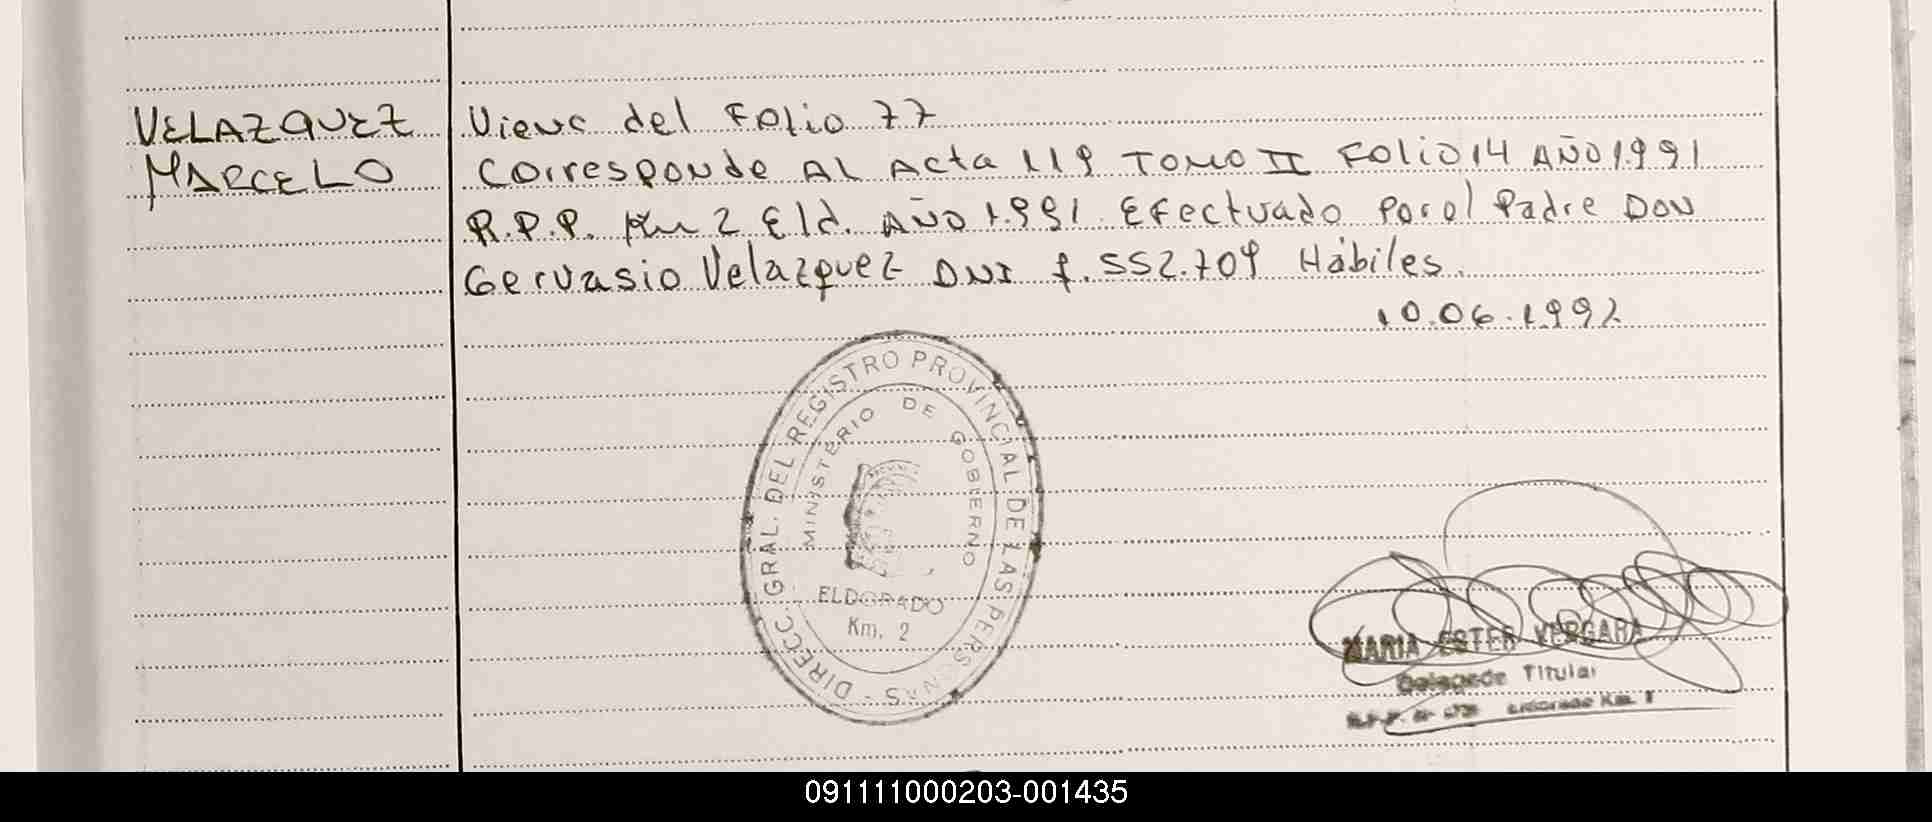 VELAZQUEZ
MARCELO
Viene del Folio 77
Corresponde AL Acta 119 TOMO II Folio 14 AÑO 1991
R.P.P. Km 2 Eld. AÑO 1.991. Efectuado Por el Padre DON
Gervasio Velazquez DNI 7.552.709 Hábiles.
10.06.1992
DIRECC. GRAL. DEL REGISTRO PROVINCIAL DE LAS PERSONAS -
MINISTERIO DE GOBIERNO
ELDORADO
Km. 2
MARIA ESTER VERGARA
Delegada Titular
Eldorado Km.
091111000203-001435